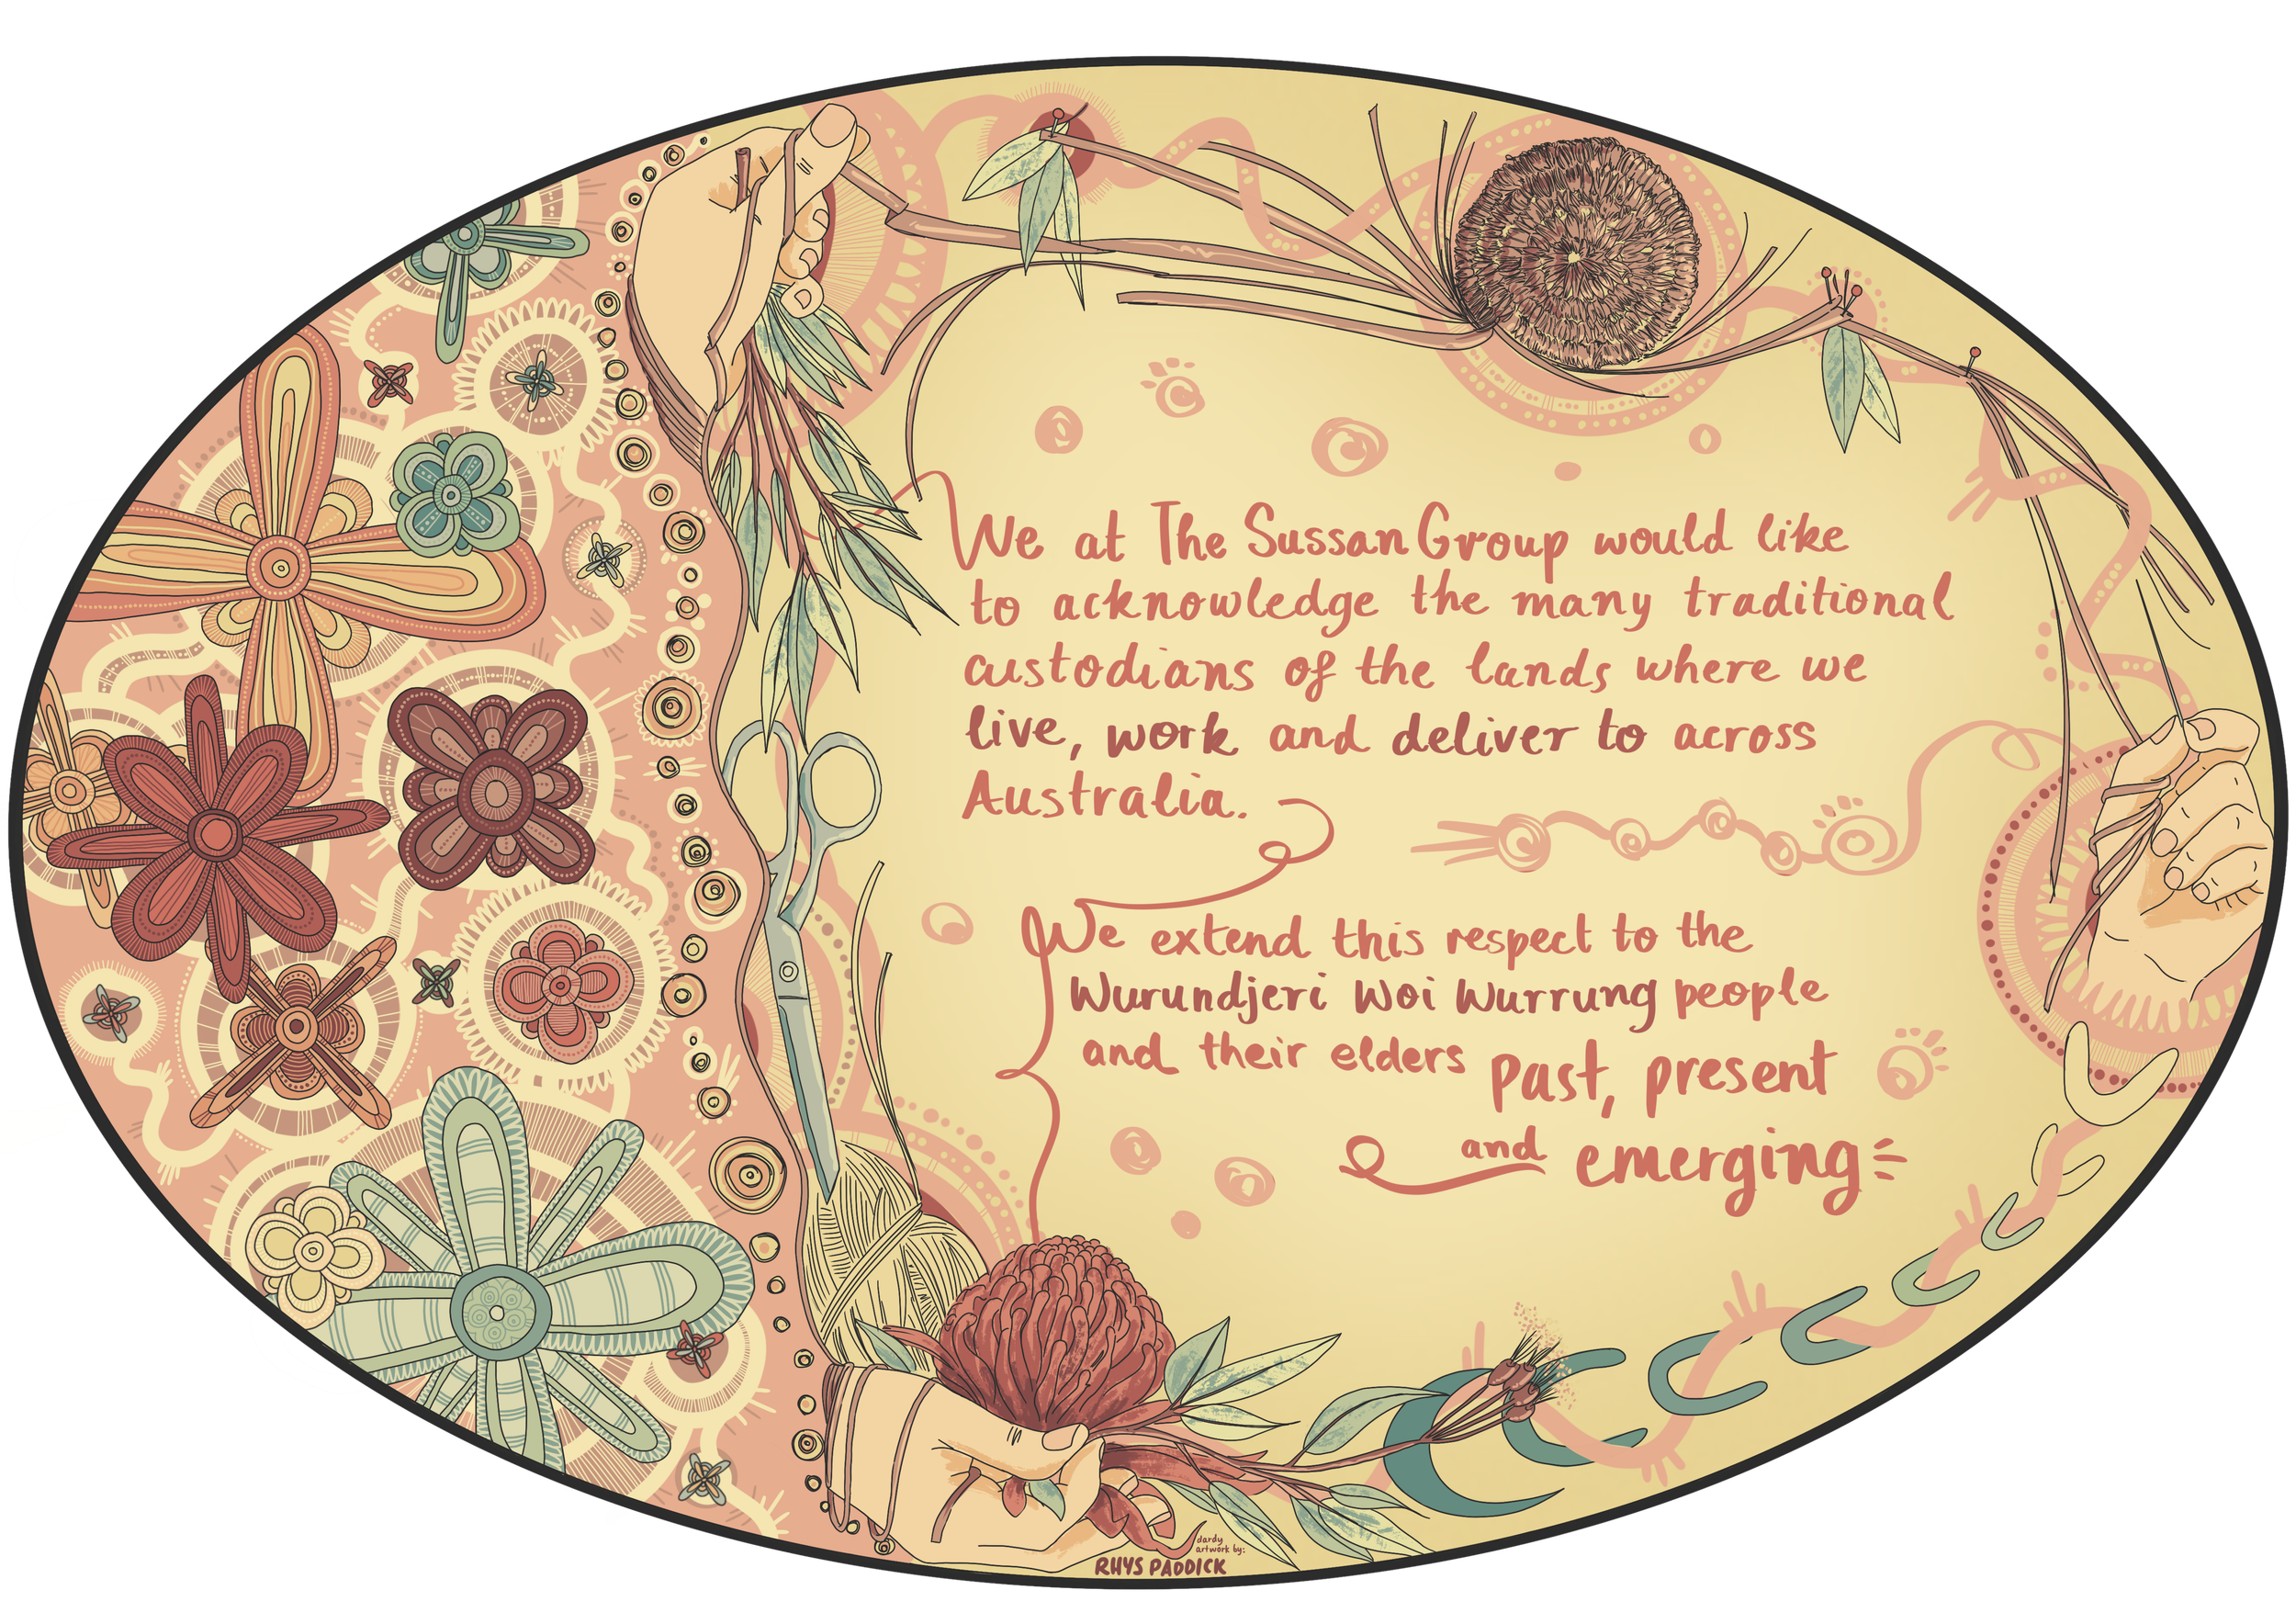 We at The Sussan Group would like
to acknowledge the many traditional
custodians of the lands where we
live, work and deliver to across
Australia.
We extend this respect to the
Wurundjeri Woi Wurrung people
and their elders past, present
and emerging
dardy
artwork by:
RHYS PADDICK